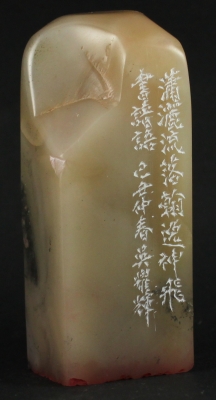 瀟灑流落翰逸神飛
書譜語 己丑仲春吳耀輝